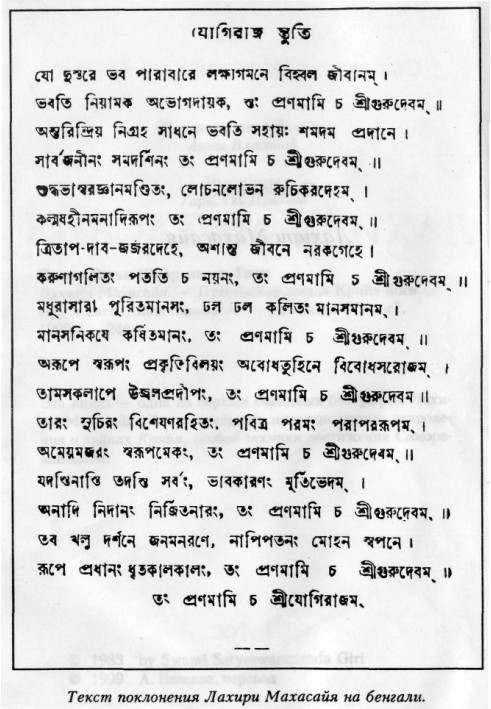 যোগিরাজ স্তুতি
যো দুস্তরে ভব পারাবারে লক্ষ্যগমনে বিহ্বল জীবানম্ ।
ভবতি নিয়ামক অভোগদায়ক, ত্বং প্রণমামি চ শ্রীগুরুদেবম্ ॥
অন্তরিন্দ্রিয় নিগ্রহ সাধনে ভবতি সহায়ঃ শমদম প্রদানে ।
সার্বজনীনং সমদর্শিনং তং প্রণমামি চ শ্রীগুরুদেবম্ ॥
শুদ্ধভাস্বরজ্ঞানমণ্ডিতং, লোচনলোভন রুচিকরদেহম্ ।
কল্মষহীনমনাদিরূপং তং প্রণমামি চ শ্রীগুরুদেবম্ ॥
ত্রিতাপ-দাব-জর্জরদেহে, অশান্ত জীবনে নরকগেহে ।
করুণাগলিতং পততি চ নয়নং, তং প্রণমামি চ শ্রীগুরুদেবম্ ॥
মধুরাসারা পূরিতমানসং, ঢল ঢল কলিতং মানসমানম্ ।
মানসনিকষে কর্বিতমানং, তং প্রণমামি চ শ্রীগুরুদেবম্ ॥
অরূপে স্বরূপং প্রকৃতিবিলয়ং অবোধতুহিনে বিবোধসরোজম্ ।
তামসকলাপে উজ্জ্বলপ্রদীপং, তং প্রণমামি চ শ্রীগুরুদেবম্ ॥
তারং স্থচিরং বিশেষণরহিতং, পবিত্র পরমং পরাপররূপম্ ।
অমেয়মজরং স্বরূপমেকং, তং প্রণমামি চ শ্রীগুরুদেবম্ ॥
যদস্তিনাস্তি তদস্তি সর্বং, ভাবকারণং মূর্তিভেদম্ ।
অনাদি নিদানং নির্জিতনারং, তং প্রণমামি চ শ্রীগুরুদেবম্ ॥
তব খলু দর্শনে জনমমরণে, নাপিপতনং মোহন স্বপনে ।
রূপে প্রধানং ধৃতকালকালং, তং প্রণমামি চ শ্রীগুরুদেবম্ ॥
তং প্রণমামি চ শ্রীযোগিরাজম্
© 1983 by Swami Satyeswarananda Giri
© 1999 А. перевод
Текст поклонения Лахири Махасайя на бенгали.